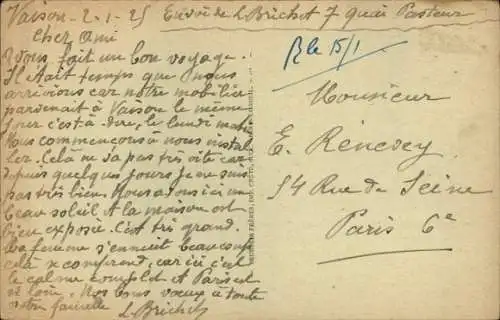 Vaison - 2-1-25 Envoi de L Brichet 7 quai Pasteur
Cher Ami
fait un bon voyage.
Il était temps que nous
arrivions car notre mobilier
parvenait à Vaison le même
jour c'est-à-dire, le lundi matin
Nous commençons à nous instal-
ler. Celà ne va pas très vite car
depuis quelques jours je ne suis
pas très bien. Nous avons ici un
beau soleil et la maison est
bien exposée. C'est très grand.
Ma femme s'ennuie beaucoup
celà se comprend, car ici c'est
le calme complet et Paris est
loin. Nos bons vœux à toute
votre famille L. Brichet
Rle 15/1
Monsieur
E. Rencsey
54 Rue de Seine
Paris 6e